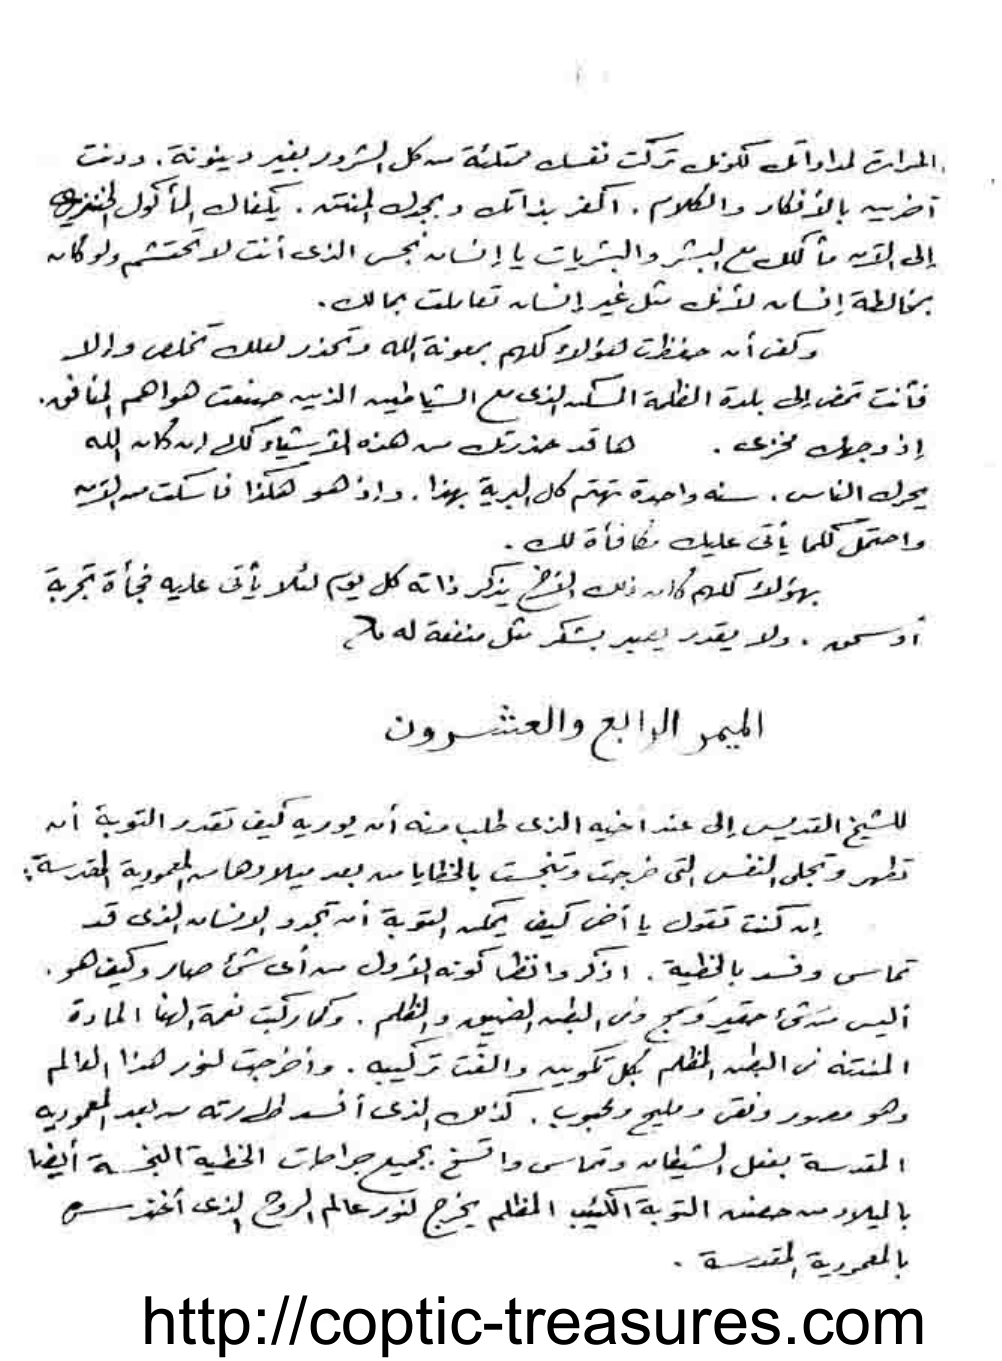 المرات لمداواتك لكونك تركت نفسك ممتلئة من كل الشرور بغير دينونة. ودنت
آخرين بالأفكار والكلام. اكفر بذاتك وبمجدك المنتن. يكفاك المأكول
إلى الآن مأكلك مع البشر والبشريات يا إنسان نجس الذى أنت لا تحتشم ولو كان
بمخالطة إنسان لأنك مثل غير إنسان تعاملت بمالك.
وكف أن حفظت هؤلاء كلهم بمعونة الله وتحذر لعلك تخلص وإلا
فأنت تمضى إلى بلدة الظلمة المسكن الذى مع الشياطين الذين صنعت هواهم المنافق.
إذ وجهك مخزى. ها قد حذرتك من هذه الأشياء كلها إن كان الله
يحرك الناس. سنه واحدة تهتم كل البرية بهذا. وإذ هو هكذا فاسكت من الآن
واحتمل كلما يأتى عليك مكافأة لك.
بهؤلاء كلهم كان ذلك الأخ يذكر ذاته كل يوم لئلا يأتى عليه فجأة تجربة
أو سجس. ولا يقدر يصير بشكر مثل منفعة له
الميمر الرابع والعشرون
للشيخ القديس إلى عند اخيه الذى طلب منه أن يوريه كيف تقدر التوبة أن
تطهر وتجلى النفس التى خرجت وتنجست بالخطايا من بعد ميلادها من المعمودية المقدسة:
إن كنت تقول يا أخى كيف يمكن التوبة أن تجدد الإنسان الذى قد
تماسى وفسد بالخطية. اذكر وانظر كونه الأول من أى شئ صار وكيف هو.
أليس من شئ حقير وسمج وفى البطن الضيق والمظلم. وكما ركبت نعمة إلهنا المادة
المنتنه فى البطن المظلم بكل تكوين والفت تركيبه. وأخرجت لنور هذا العالم
وهو مصور ونقى ومليح ومحبوب. كذلك الذى أفسد طهارته من بعد المعموديه
المقدسة بفعل الشيطان وتماسى واتسخ بجميع جراحات الخطية النجسة أيضا
بالميلاد من حضن التوبة الكئيب المظلم يخرج لنور عالم الروح الذى أخذ سره
بالمعمودية المقدسة.
http://coptic-treasures.com